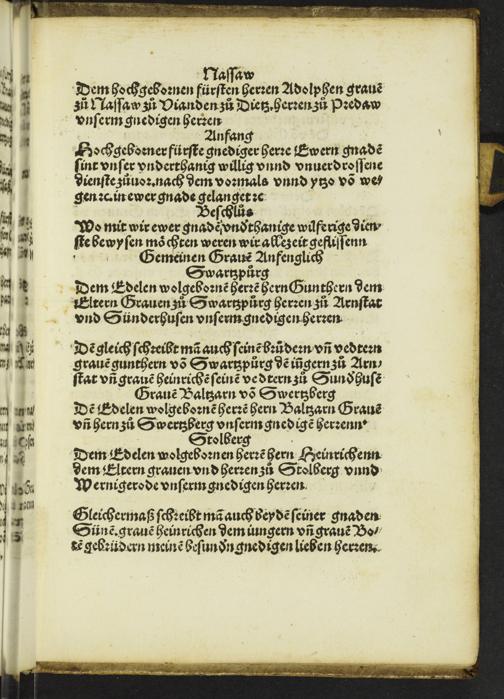 Nassaw
Dem hochgebornen fürsten herren Adolphen grauē
zů Nassaw zů Vianden zů Dietz, herren zů Predaw
vnserm gnedigen herren
Anfang
Hochgeborner fürste gnediger herre Ewern gnadē
sint vnser vnderthanig willig vnnd vnuerdrossene
dienste zůuor, nach dem vormals vnnd ytzo vō we/
gen ꝛc. in ewer gnade gelanget ꝛc
Beschlůs
Wo mit wir ewer gnadē vnd̄thanige wilferige dien/
ste bewysen mōchten weren wir allezeit geflissenn
Gemeinen Grauē Anfenglich
Swartzpůrg
Dem Edelen wolgebornē herrē hern Gunthern dem
Eltern Grauen zů Swartzpůrg herren zů Arnstat
vnd Sůnderhusen vnserm gnedigen herren
Dē gleich schreibt mā auch seinē brůdern vn̄ vedtern
grauē gunthern vō Swartzpůrg dē iůgern zů Arn/
stat vn̄ grauē heinrichē seinē vedtern zů Sundhusē
Grauē Baltzarn vō Swertzberg
Dē Edelen wolgebornē herrē hern Baltzarn Grauē
vn̄ hern zů Swertzberg vnserm gnedigē herrenn
Stolberg
Dem Edelen wolgebornen herrē hern Heinrichenn
dem Eltern grauen vnd herren zů Stolberg vnnd
Wernigerode vnserm gnedigen herren
Gleichermaß schreibt mā auch beydē seiner gnaden
Sůnē, grauē heinrichen dem iungern vn̄ grauē Bo/
tē gebrůdern meinē besund̄n gnedigen lieben herren.